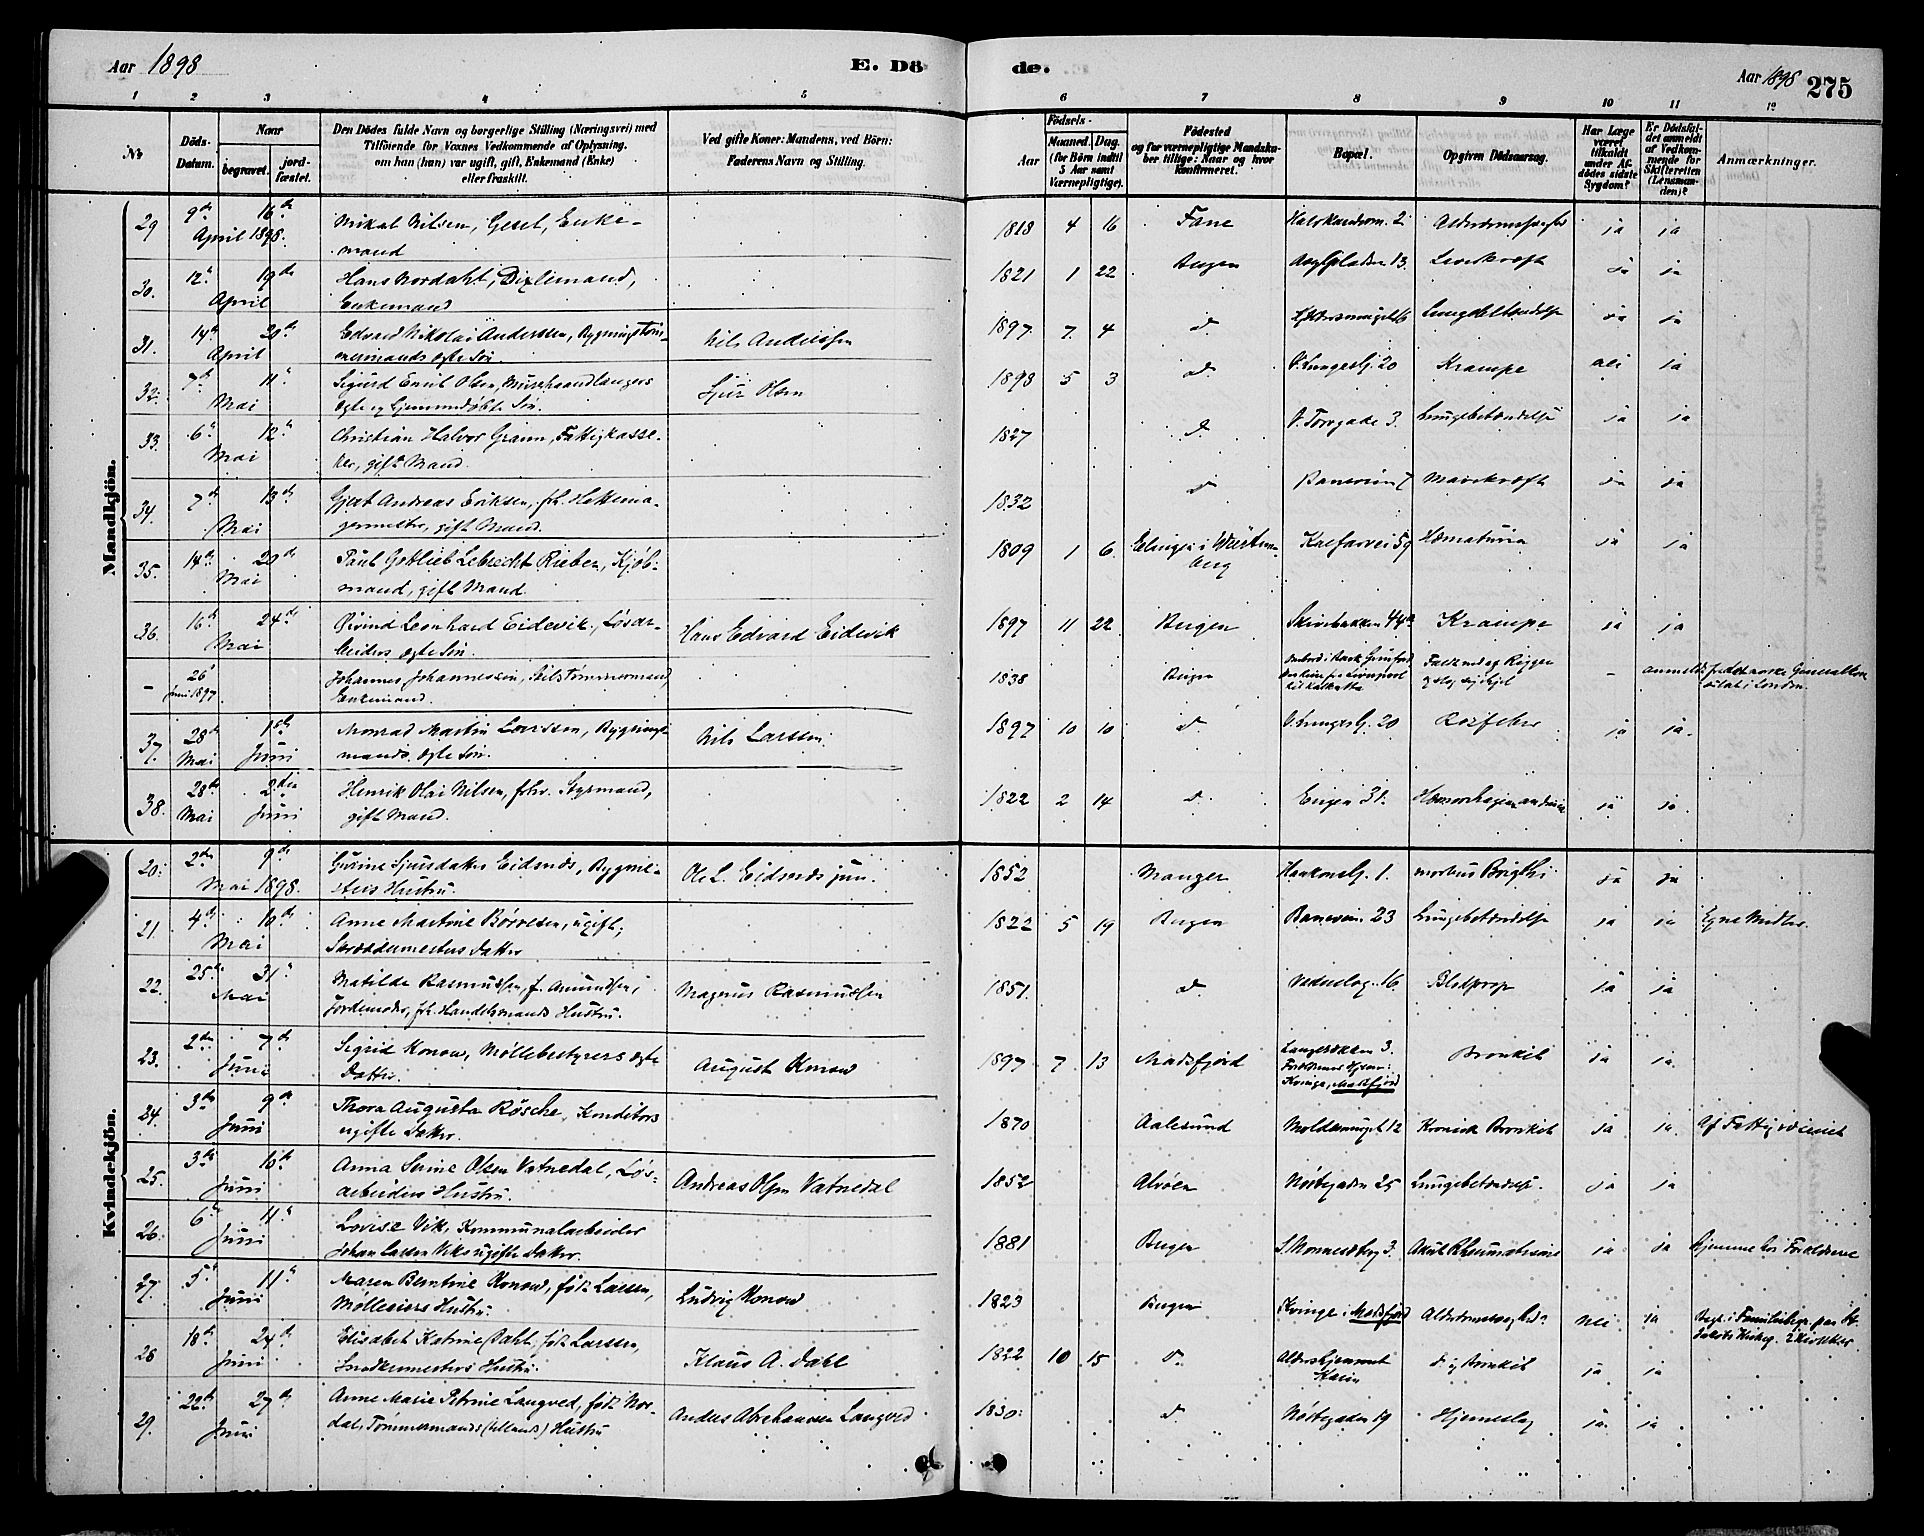 Aar 1898
E. Dö
de.
Aar 1898
275
1 2 3 4 5 6 7 8 9 10 11 12
No
Döds-
Datum.
Naar
begravet.
jord-
fæstet.
Den Dödes fulde Navn og borgerlige Stilling (Næringsvei) med
Tilföiende for Voxnes Vedkommende af Oplysning,
om han (hun) var ugift, gift, Enkemand (Enke)
eller fraskilt.
Ved gifte Koner: Mandens, ved Börn:
Faderens Navn og Stilling.
Födsels-
Aar
Maaned. Dag.
(for Börn indtil
5 Aar samt
Værnepligtige).
Födested
og for værnepligtige Mandska-
ber tillige: Naar og hvor
konfirmeret.
Bopæl.
Opgiven Dödsaarsag.
Har Læge
været
tilkaldt
under Af-
dödes sidste
Sygdom?
Er Dödsfal-
det anmeldt
af Vedkom-
mende for
Skifteretten
(Lensman-
den)?
Anmærkninger.
Mandkjön.
29 9de April 1898. 16de Mikal Nilsen, Gesel, Enke-
mand 1818 4 16 Fane 2 ja ja
30. 12te April 19de Hans Nordahl, Dixlemand,
Enkemand 1821 1 22 Bergen 13. ja ja
31. 14de April 20de Edvard Nikolai Anderssen, Bygningstøm-
mermands ægte Søn Nils Anderssen 1897 7 4 d. Lungebetændelse ja ja
32. 7de Mai 11te Sigurd Emil Olsen, Murhaandlangers
ægte og hjemmedøbte Søn. Sjur Olsen 1898 5 3 d. V. Lungegt. 20 Krampe nei ja
33. 6te Mai 12te Christian Halvor Grann, Fattigkasse-
rer, gift Mand. 1827 d. V. Torvgade 3. Lungebetændelse ja ja
34. 7de Mai 13de Gjert Andreas Eriksen, fh. Hattema-
germester, gift Mand. 1832 d. Baneveien 7 Mavekræft ja ja
35. 14de Mai 20de Paul Gottlieb Lebrecht Rieber, Kjøb-
mand, gift Mand. 1809 1 6 i Würtem-
berg Kalfarvei 59 Hæmaturia ja ja
36. 16de Mai 24de Øivind Leonhard Eidevik, Løsar-
beiders ægte Søn. Hans Edvard Eidevik 1897 11 22 Bergen Skivebakken 44a Krampe ja ja
– 26 Juni 1897 Johannes Johannessen, Seilstømmermand,
Enkemand. 1838 Bergen Ombord i Bark
fra Liverpool
til Kalkutta Faldt ned og
og slog sig ihjel – anmeldt fra det norske Generalkon-
sulat i London.
37. 28de Mai 1ste Juni Monrad Martin Larssen, Bygnings-
mands ægte Søn. Nils Larssen. 1897 10 10 d. V. Lungegt. 20 ja ja.
38. 28de Mai 2den Juni Henrik Olai Nilsen, fhv. Styrmand,
gift Mand. 1822 2 14 d. Engen 31. ja ja
Kvindekjön.
20. 2den Mai 1898. 9de Gurine Sjursdatter Eidsnes, Bygmes-
ters Hustru. Ole L. Eidsnes jun. 1852 Manger Haakonsg. 1. morbus Brigthi ja ja
21. 4de Mai 10de Anne Martine Børresen, ugift,
Skræddermesters Datter 1822 5 19 Bergen Baneveien 23 Lungebetændelse ja ja Egne Midler.
22. 25de Mai 31te Matilde Rasmussen, f. Amundsen,
Jordemoder, fh. Handelsmands Hustru. Magnus Rasmussen 1851. d. 16. Blodprop ja ja
23. 2den Juni 7de Sigrid Konow, Møllebestyrers ægte
Datter. August Konow 1897 7 13 Masfjord 3.
Forældrenes Hjem:
Kvinge, Masfjord Bronkit ja ja.
24. 3de Juni 9de Thora Augusta Røsche, Konditors
ugifte Datter. 1870 Aalesund 12 Kronisk Bronkit ja ja. Af Fattigvæsenet
25. 3de Juni 10de Anna Serine Olsen Vatnedal, Løs-
arbeiders Hustru. Andreas Olsen Vatnedal 1852 Alvøen Nøstegaden 25 Lungebetændelse. ja ja
26. 6te Juni 11te Lovise Vik, Kommunalarbeider
Johan Larsen Viks ugifte Datter. 1881 Bergen 3. Akut Rheumatisme ja ja Hjemme hos Forældrene
27. 5te Juni 11te Maren Berntine Konow, født Larsen,
Mølleeiers Hustru Ludvig Konow 1823 Bergen Kvinge i Masfjord Alderdomssvaghed nei ja Begr. i Familiebegr. paa St.
Jakobs Kirkeg. 2 Klokker.
28 18de Juni 24de Elisabet Katrine Dahl, født Larssen,
Snedkermesters Hustru. Klaus A. Dahl 1822 10 15 d. Aldershjemmet
d. og Bronkit ja ja
29. 22de Juni 27de Anne Marie Petrine Langved, født Nor-
dal, Tømmermands (tillands) Hustru Anders Abrahamsen Langved 1830. d. Nøstegaden 19 Hjerneslag ja. ja